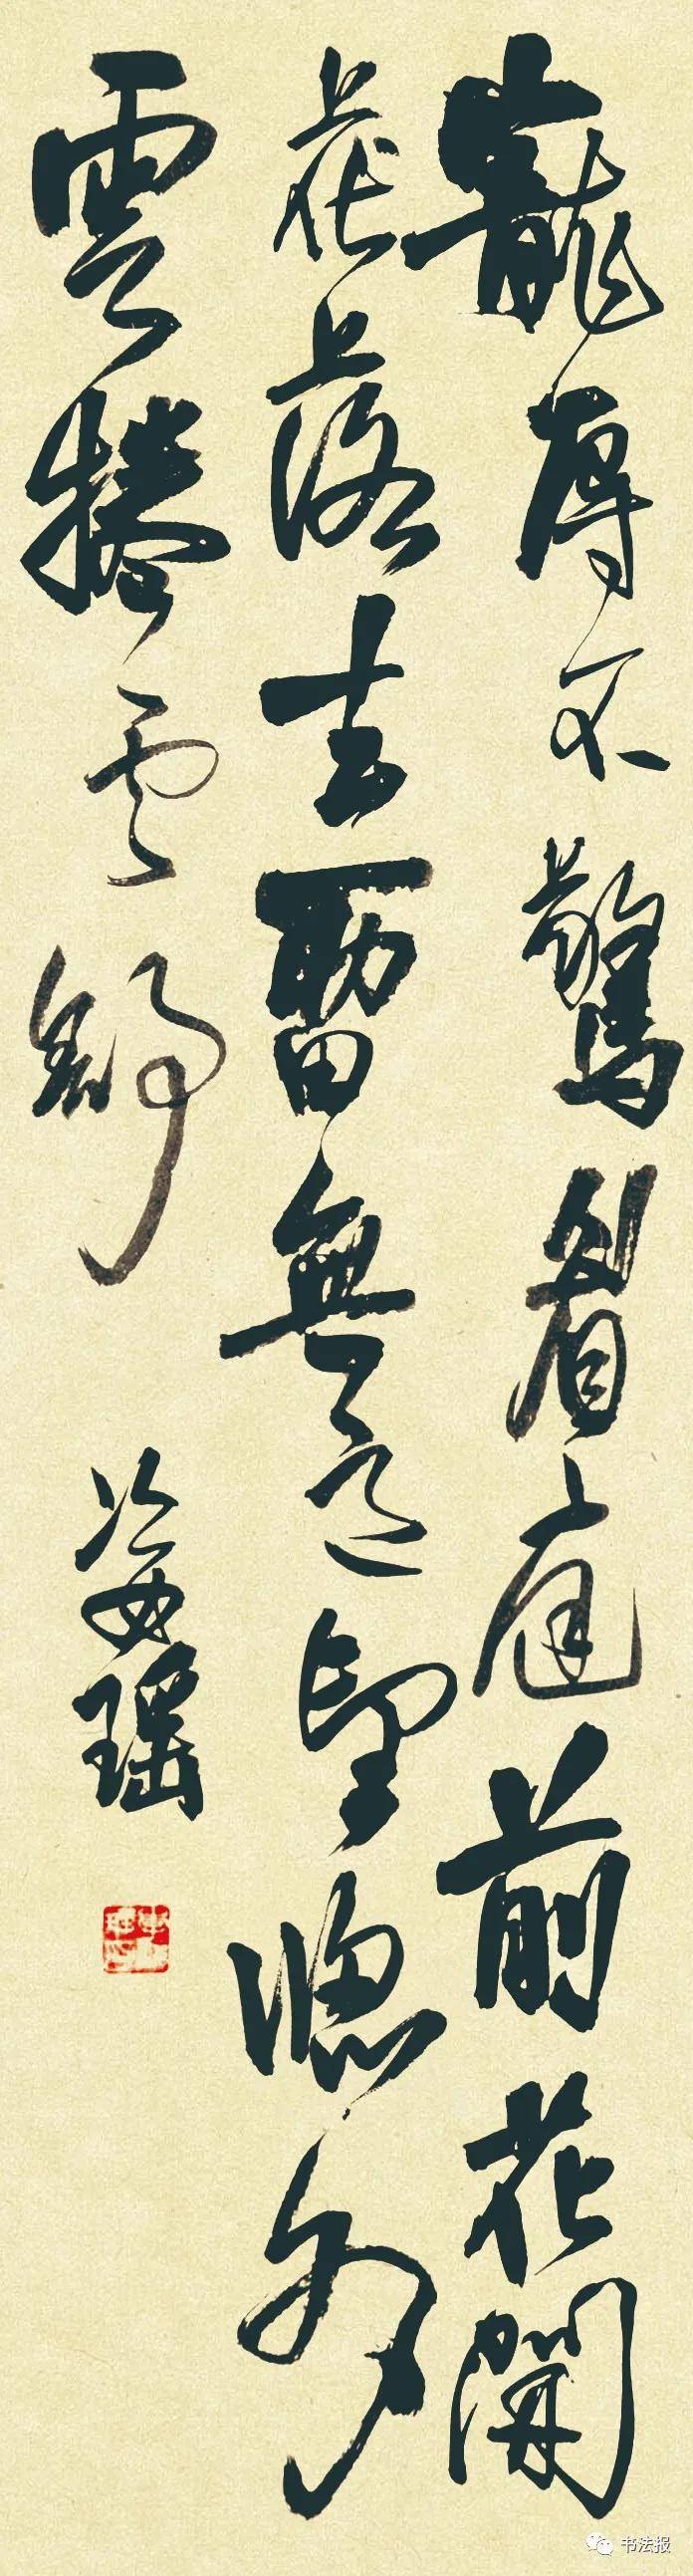 寵辱不驚看庭前花開
花落去留無意望牕外
雲捲雲舒
姿瑶
书法报